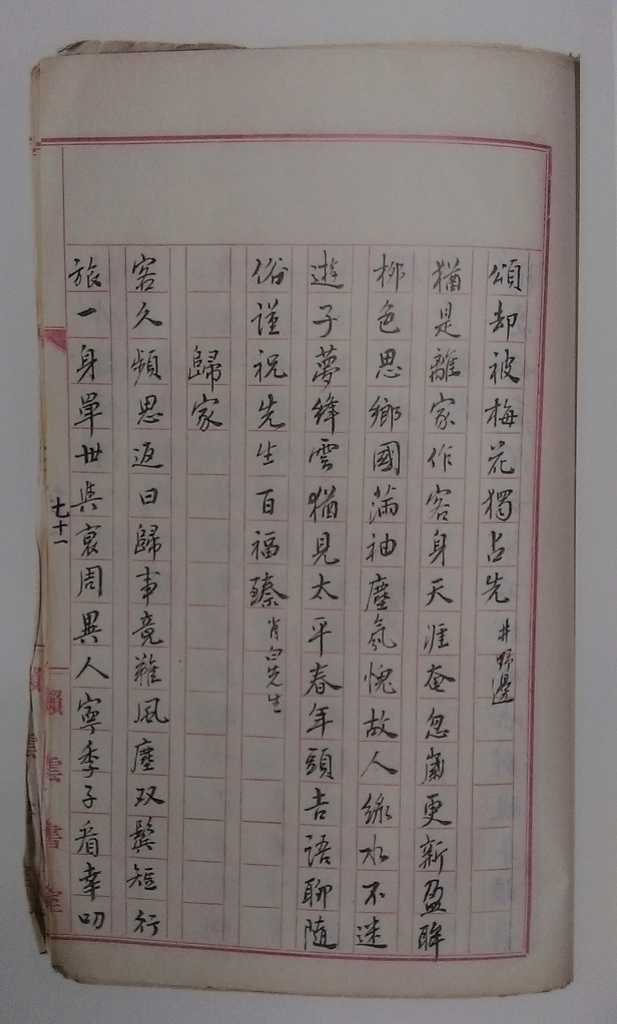 頌却被梅花獨占先 井野邊
猶是離家作客身天涯奄忽嵗更新盈眸
柳色思鄉國滿袖塵氛愧故人綠水不迷
遊子夢絳雲猶見太平春年頭吉語聊隨
俗謹祝先生百福臻 肖白先生
歸家
客久頻思返曰歸事竟難風塵双鬢短行
旅一身單世與衰周異人寧季子看幸叨
七十一
雲書室